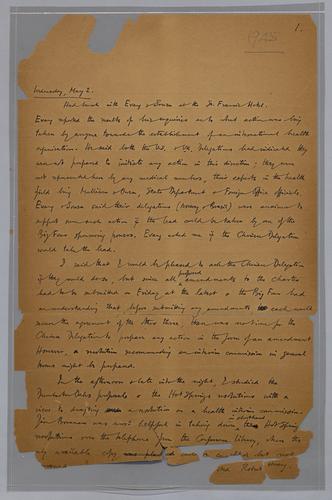 1.
1945
Wednesday, May 2.
Had lunch with Evang & Souza at the St. Francis Hotel.
Evang reported the results of his inquiries as to what action was being
taken by anyone towards the establishment of an international health
organisation. He said both the U.S. & U.K. Delegations had indicated they
were not prepared to initiate any action in this direction; they were
not represented here by any medical members, their experts in the health
field being Mulliner & Owen, State Department & Foreign Office officials.
Evang & Souza said their delegations (Norway & Brazil) were anxious to
support some such action if the lead could be taken by one of the
Big Four sponsoring powers. Evang asked me if the Chinese Delegation
would take the lead.
I said that I would be pleased to ask the Chinese Delegation
if they would do so, but since all proposed amendments to the Charter
had to be submitted on Friday at the latest & the Big Four had
an understanding that before submitting any amendments each would
secure the agreement of the other three, there was no time for the
Chinese Delegation to prepare any action in the form of an amendment.
However, a resolution recommending an interim commission in general
terms might be prepared.
In the afternoon & late into the night, I studied the
Dumbarton Oaks proposals & the Hot Springs resolutions with a
view to drafting a resolution on a health interim commission.
Jim was most helpful in taking down in shorthand the Hot Springs
resolutions over the telephone from the Conference library, where the
only available copy could be consulted but not